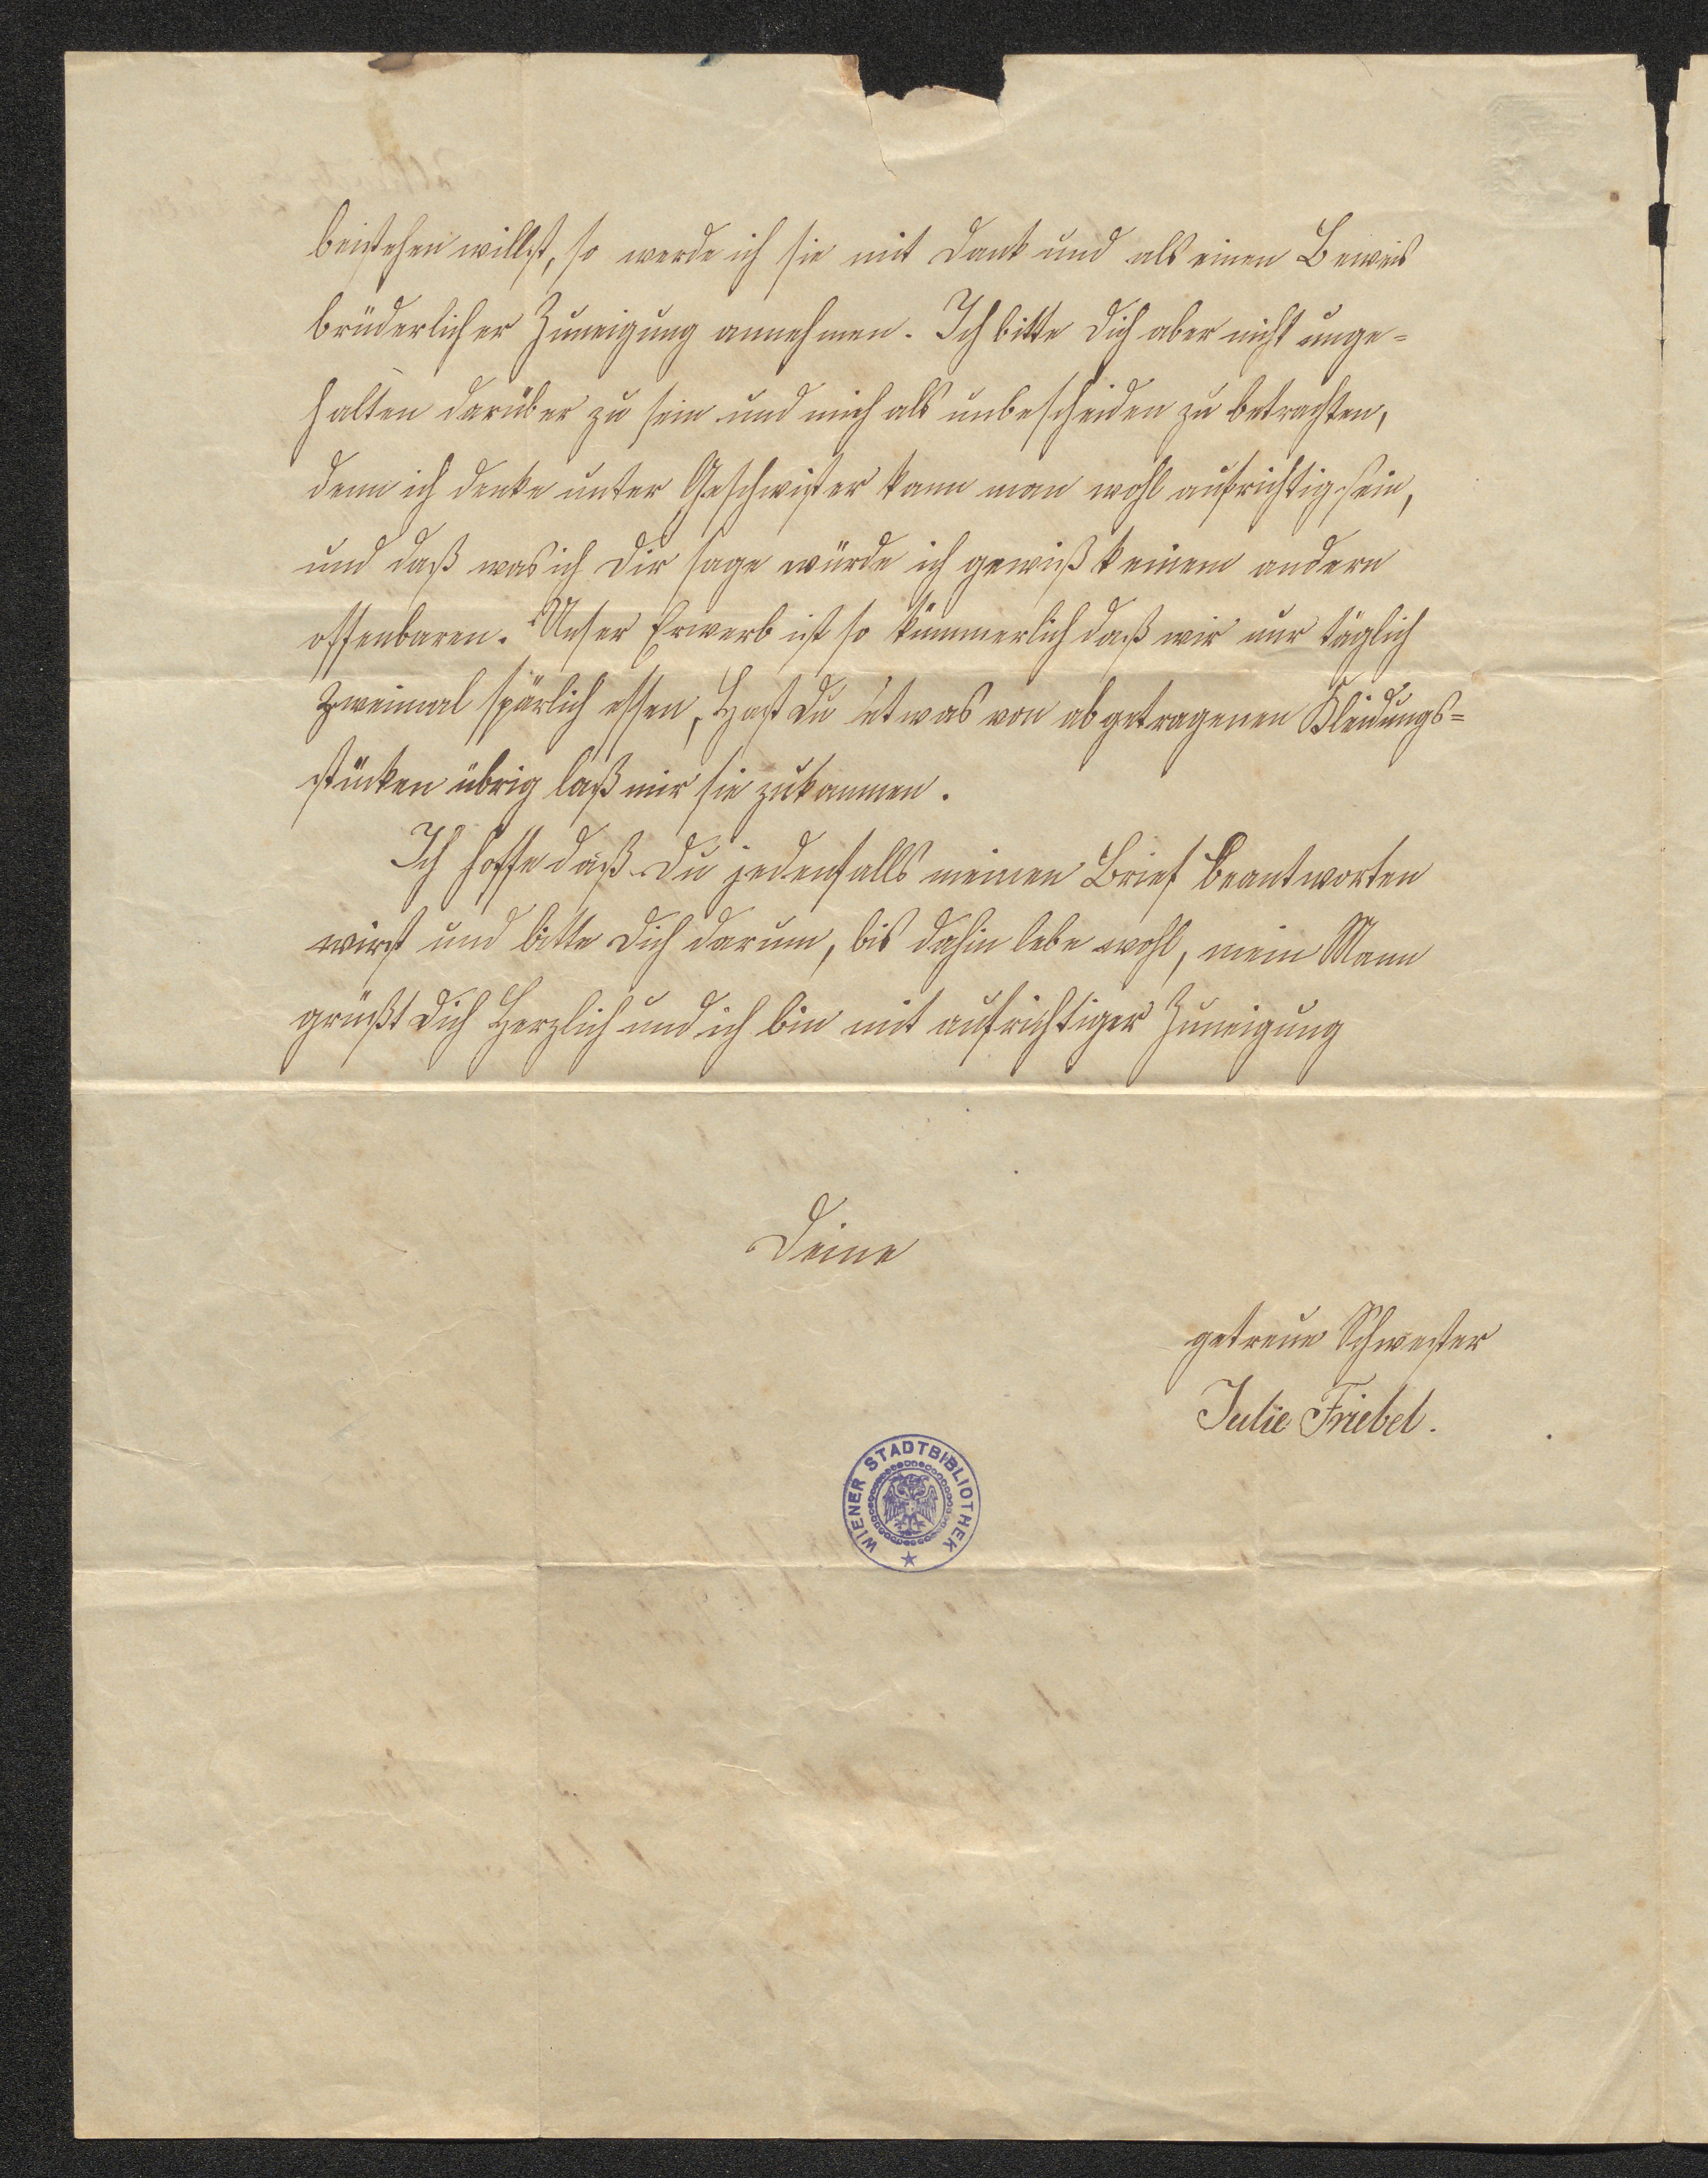 beistehen willst, so werde ich sie mit Dank und als einen Beweis
brüderlicher Zuneigung annehmen. Ich bitte Dich aber nicht unge-
halten darüber zu sein und mich als unbescheiden zu betrachten,
denn ich denke unter Geschwister kann man wohl aufrichtig sein,
und daß was ich Dir sage würde ich gewiß keinem andern
offenbaren. Unser Erwerb ist so kümmerlich daß wir nur täglich
zweimal spärlich essen, Hast Du etwas von abgetragenen Kleidungs-
stücken übrig laß mir sie zukommen.
Ich hoffe daß Du jedenfalls meinen Brief beantworten
wirst und bitte Dich darum, bis dahin lebe wohl, mein Mann
grüßt Dich Herzlich und ich bin mit aufrichtiger Zuneigung
Deine
getreue Schwester
Julie Friebel.
WIENER STADTBIBLIOTHEK